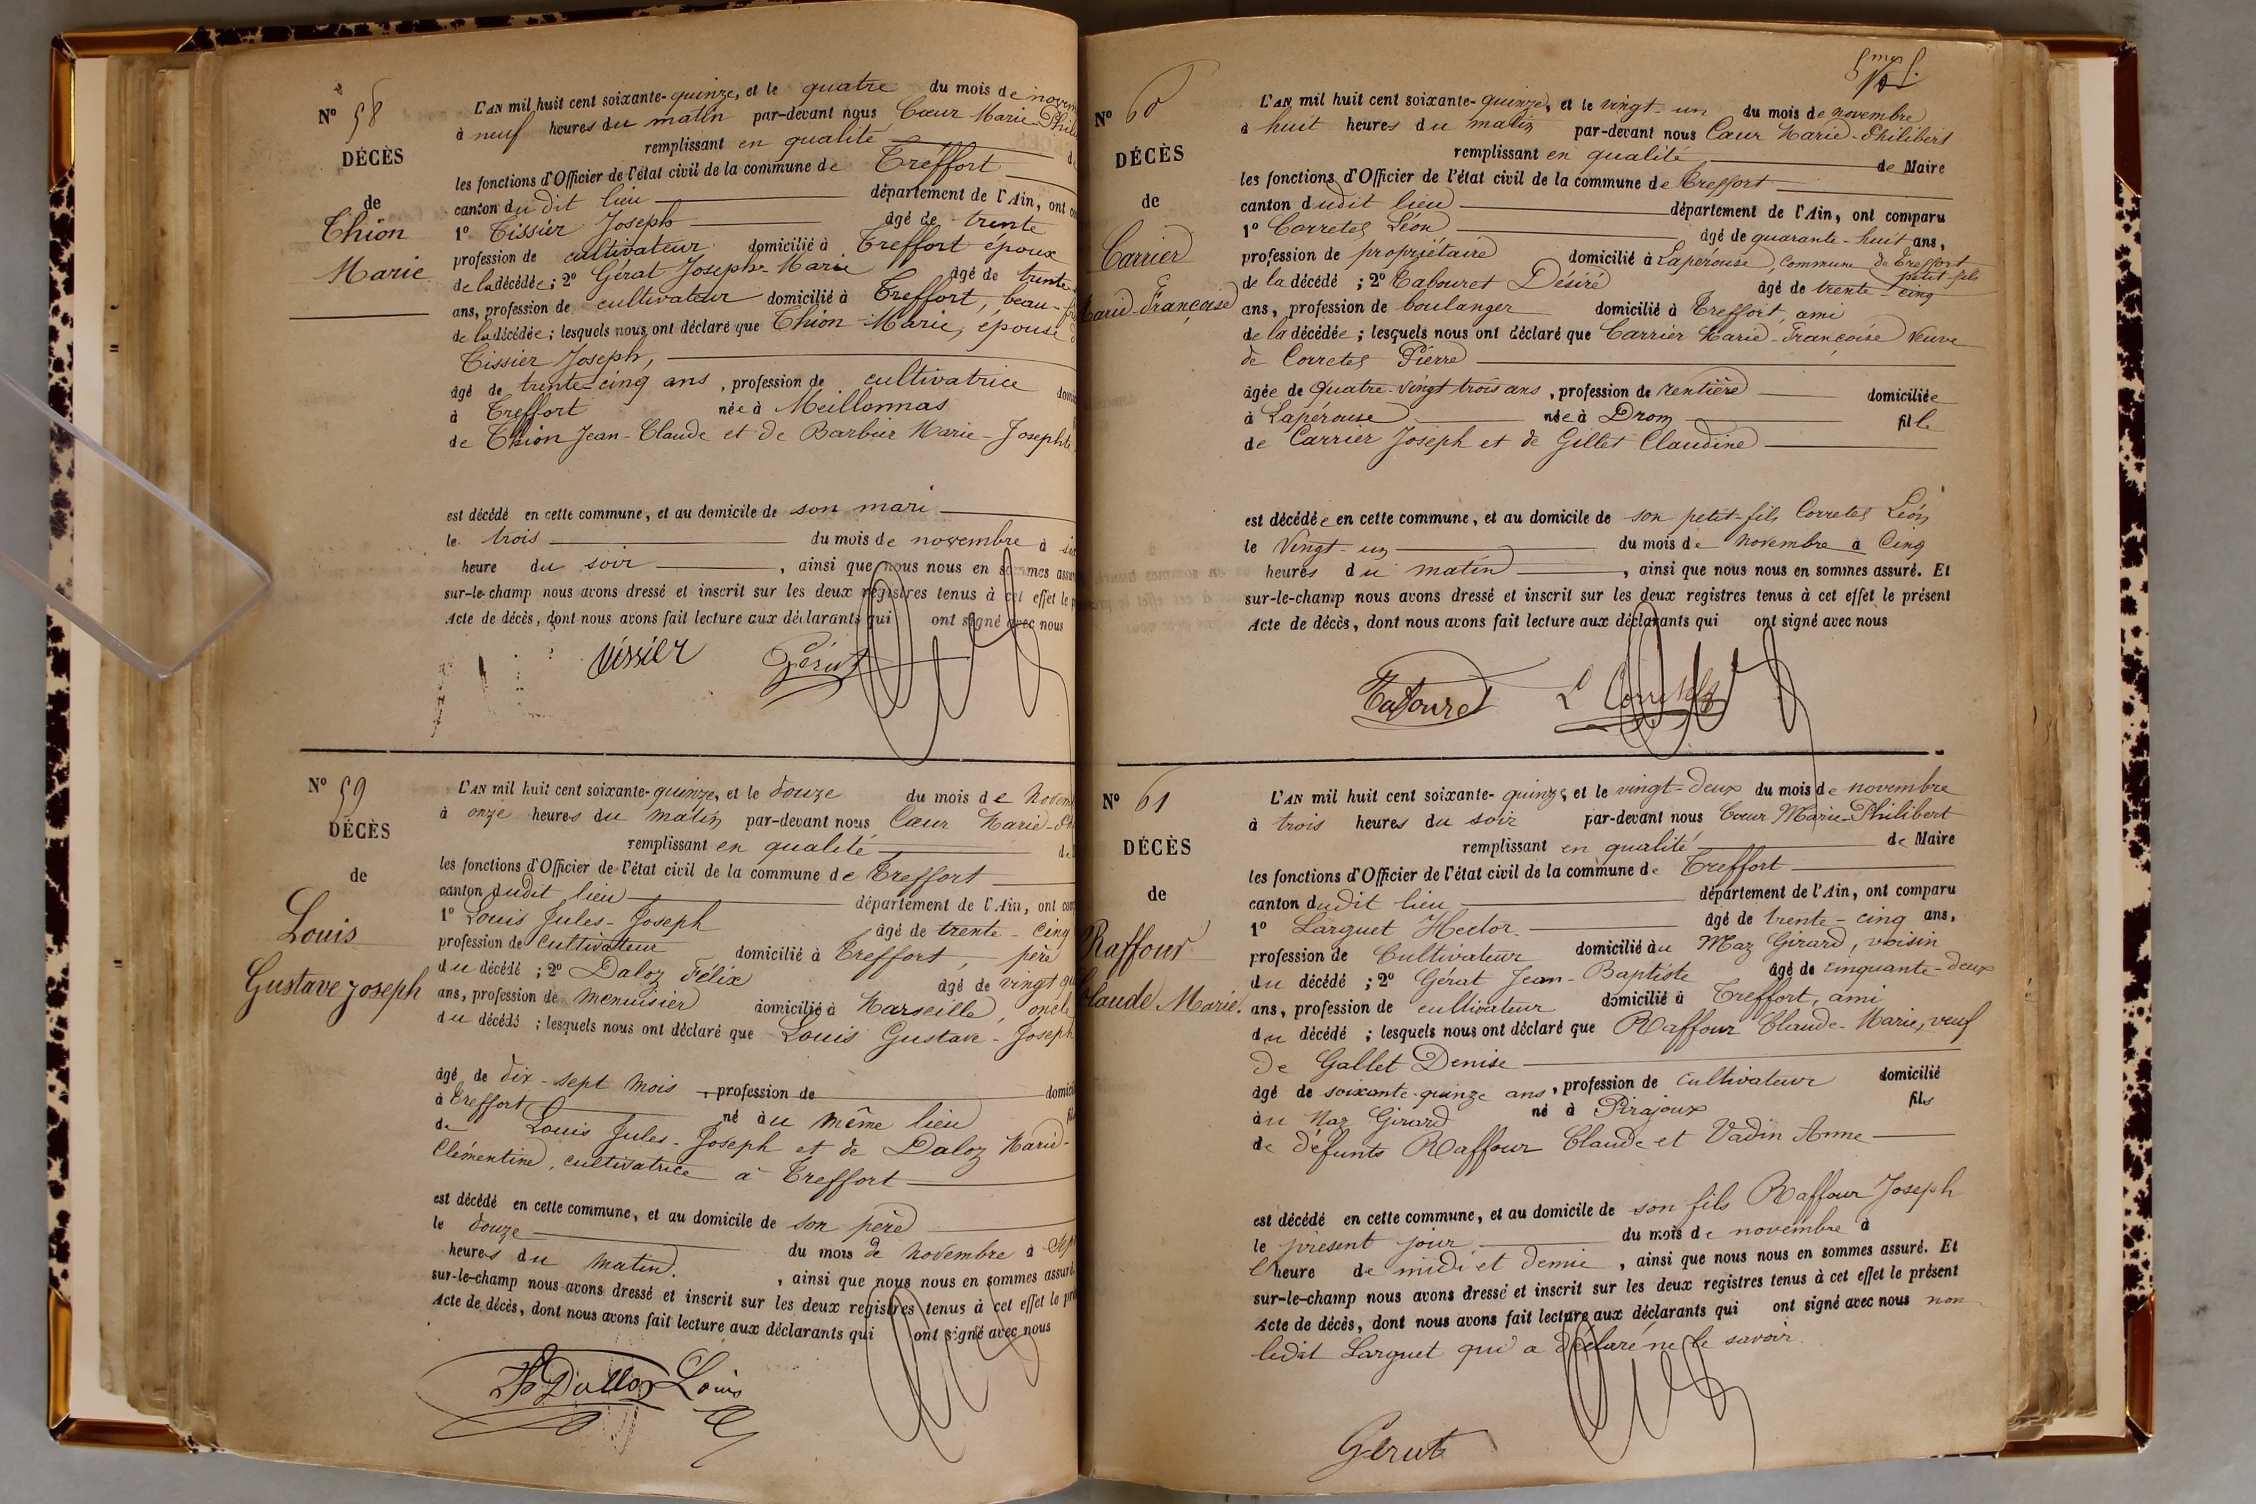 N° 58
DÉCÈS
de
Thion
Marie
L'AN mil huit cent soixante-quinze, et le quatre du mois de
à neuf heures du matin par-devant nous Cœur Marie
remplissant en qualité
les fonctions d'Officier de l'état civil de la commune de Treffort
canton du dit lieu département de l'Ain, ont
1° Tissier Joseph âgé de trente
profession de cultivateur domicilié à Treffort époux
de la décédée ; 2° Gérat Joseph-Marie âgé de trente
ans, profession de cultivateur domicilié à Treffort, beau-
de la décédée ; lesquels nous ont déclaré que Thion Marie, épouse
Tissier Joseph,
âgé de trente-cinq ans , profession de cultivatrice
à Treffort née à Meillonnas
de Thion Jean-Claude et de Barbur Marie-Josephte
est décédé en cette commune, et au domicile de son mari
le trois du mois de novembre à
heure du soir , ainsi que nous nous en sommes
sur-le-champ nous avons dressé et inscrit sur les deux registres tenus à cet effet le
Acte de décès, dont nous avons fait lecture aux déclarants qui ont signé avec nous
Tissier Gérat
N° 59
DÉCÈS
de
Louis
Gustave Joseph
L'AN mil huit cent soixante-quinze, et le douze du mois de
à onze heures du matin par-devant nous Cœur Marie
remplissant en qualité
les fonctions d'Officier de l'état civil de la commune de Treffort
canton dudit lieu département de l'Ain, ont
1° Louis Jules-Joseph âgé de trente-cinq
profession de cultivateur domicilié à Treffort, père
du décédé ; 2° Daloz Félix âgé de vingt
ans, profession de menuisier domicilié à Marseille, oncle
du décédé ; lesquels nous ont déclaré que Louis Gustave-Joseph
âgé de dix-sept mois , profession de
à Treffort né au même lieu
de Louis Jules-Joseph et de Daloz Marie-
Clémentine, cultivatrice à Treffort
est décédé en cette commune, et au domicile de son père
le douze du mois de novembre à
heures du matin. , ainsi que nous nous en sommes
sur-le-champ nous avons dressé et inscrit sur les deux registres tenus à cet effet le
Acte de décès, dont nous avons fait lecture aux déclarants qui ont signé avec nous
Louis
N° 60
DÉCÈS
de
Carrier
Marie-Françoise
L'AN mil huit cent soixante-quinze, et le vingt-un du mois de novembre
à huit heures du matin par-devant nous Cœur Marie-Philibert
remplissant en qualité de Maire
les fonctions d'Officier de l'état civil de la commune de Treffort
canton dudit lieu département de l'Ain, ont comparu
1° Corretel Léon âgé de quarante-huit ans,
profession de propriétaire domicilié à Lapérouse, commune de Treffort
petit-fils
de la décédé ; 2° Tabouret Désiré âgé de trente-cinq
ans, profession de boulanger domicilié à Treffort, ami
de la décédée ; lesquels nous ont déclaré que Carrier Marie-Françoise Veuve
de Corretel Pierre
âgée de Quatre-vingt trois ans , profession de rentière domiciliée
à Lapérouse née à Drom fille
de Carrier Joseph et de Gillet Claudine
est décédée en cette commune, et au domicile de son petit-fils Corretel Léon
le Vingt-un du mois de Novembre à Cinq
heures du matin , ainsi que nous nous en sommes assuré. Et
sur-le-champ nous avons dressé et inscrit sur les deux registres tenus à cet effet le présent
Acte de décès, dont nous avons fait lecture aux déclarants qui ont signé avec nous
Tabouret L Corretel
N° 61
DÉCÈS
de
Raffour
Claude Marie.
L'AN mil huit cent soixante-quinze, et le vingt-deux du mois de novembre
à trois heures du soir par-devant nous Cœur Marie-Philibert
remplissant en qualité de Maire
les fonctions d'Officier de l'état civil de la commune de Treffort
canton dudit lieu département de l'Ain, ont comparu
1° Larguet Hector âgé de trente-cinq ans,
profession de Cultivateur domicilié au Maz Girard, voisin
du décédé ; 2° Gérat Jean-Baptiste âgé de cinquante-deux
ans, profession de cultivateur domicilié à Treffort, ami
du décédé ; lesquels nous ont déclaré que Raffour Claude-Marie, veuf
de Gallet Denise
âgé de soixante-quinze ans , profession de cultivateur domicilié
au Maz Girard né à Pirajoux fils
de défunts Raffour Claude et Vadin Anne
est décédé en cette commune, et au domicile de son fils Raffour Joseph
le présent jour du mois de novembre à
l'heure de midi et demie , ainsi que nous nous en sommes assuré. Et
sur-le-champ nous avons dressé et inscrit sur les deux registres tenus à cet effet le présent
Acte de décès, dont nous avons fait lecture aux déclarants qui ont signé avec nous non
ledit Larguet qui a déclaré ne le savoir
Gérat